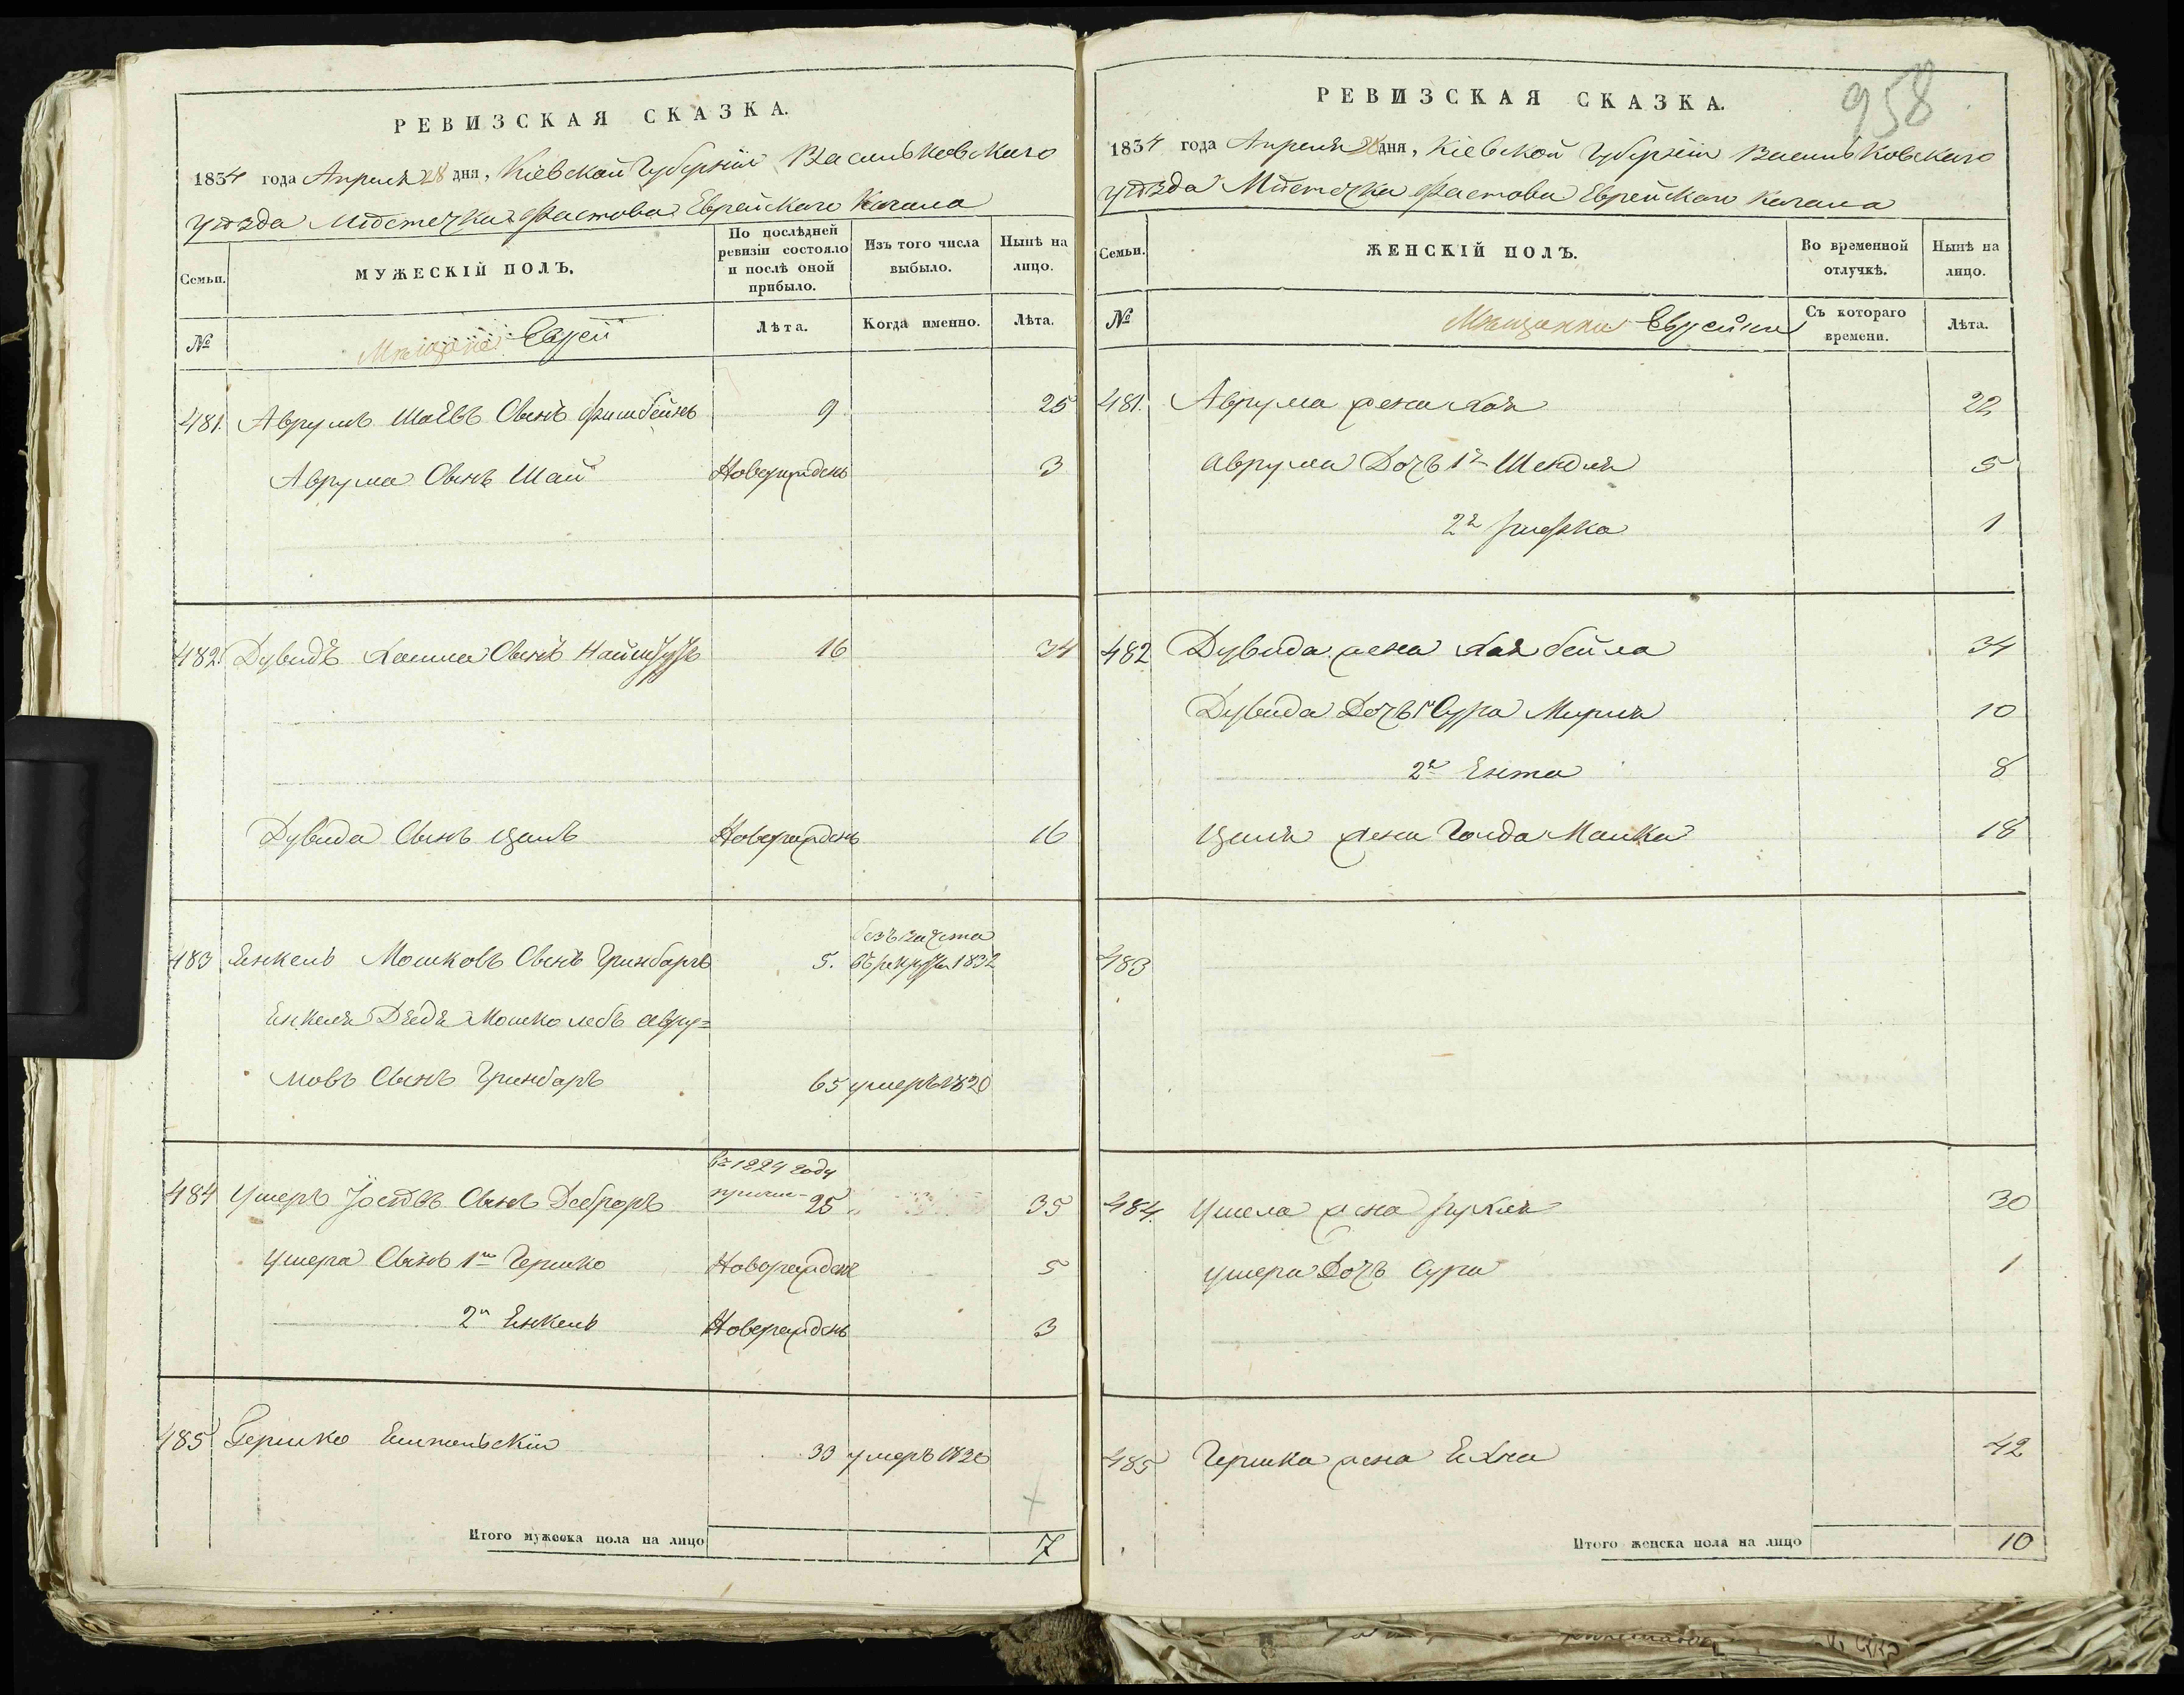 РЕВИЗСКАЯ СКАЗКА.
1834 года Апреля 28 дня, Кіевской Губерніи Васильковскаго
уѣзда Мѣстечка Фастова Еврейскаго Кагала
Семьи.
МУЖЕСКІЙ ПОЛЪ.
По послѣдней ревизіи состояло и послѣ оной прибыло.
Изъ того числа выбыло.
Нынѣ на лицо.
№
Мѣщане Евреи
Лѣта.
Когда именно.
Лѣта.
481. Аврумъ Шаевъ Сынъ 9 25
Аврума Сынъ Шай Новорожденъ 3
482. Дувидъ Сынъ 16 34
Дувида Сынъ Цаль Новорожденъ 16
безъ зачета
483 Енкель Мошковъ Сынъ Гринбаргъ 5. въ рекруты 1832
Енкеля Дядя Мошко лебъ Авру=
мовъ Сынъ Гринбаръ 65 умеръ 1820
въ 1824 году
484 Ушеръ Іосевъ Сынъ 25 35
Ушера Сынъ 1й Гершко Новорожденъ 5
2й Енкель Новорожденъ 3
485 Гершко 33 умеръ 1826
Итого мужеска пола на лицо 7
958
РЕВИЗСКАЯ СКАЗКА.
1834 года Апреля 28 дня, Кіевской Губерніи Васильковскаго
уѣзда Мѣстечка Фастова Еврейскаго Кагала
Семьи.
ЖЕНСКІЙ ПОЛЪ.
Во временной отлучкѣ.
Нынѣ на лицо.
№
Мѣщанки Еврейки
Съ котораго времени.
Лѣта.
481. Аврума жена Хая 22
Аврума Дочь 1я Шендля 5
2я Рифка 1
482 Дувида жена Хая бейла 34
Дувида Дочь 1я Сура Мирля 10
2я Ента 8
Цаля жена Голда Малка 18
483
484. Ушера жена Рухля 30
Ушера Дочь Сура 1
485 Гершка жена Ехна 42
Итого женска пола на лицо 10